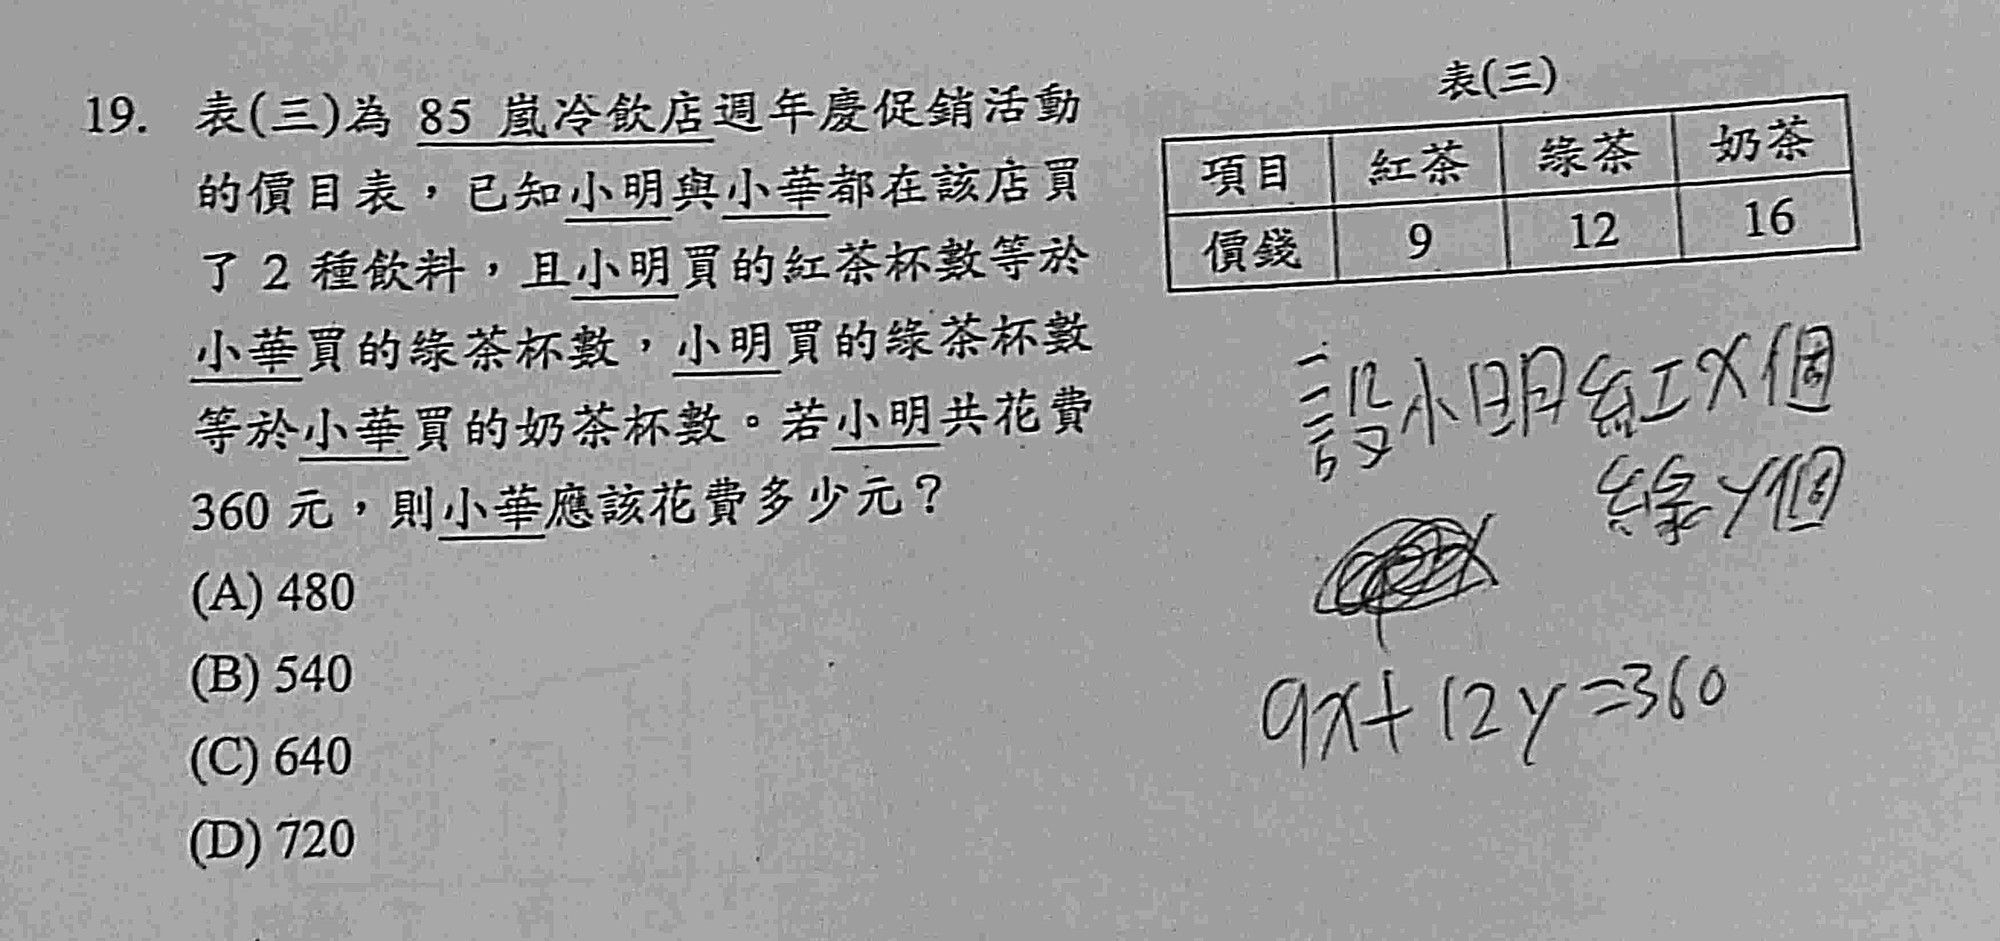 19. 表(三)為 85 嵐冷飲店週年慶促銷活動
的價目表，已知小明與小華都在該店買
了 2 種飲料，且小明買的紅茶杯數等於
小華買的綠茶杯數，小明買的綠茶杯數
等於小華買的奶茶杯數。若小明共花費
360 元，則小華應該花費多少元？
(A) 480
(B) 540
(C) 640
(D) 720
表(三)
項目 紅茶 綠茶 奶茶
價錢 9 12 16
設小明紅x個
綠y個
9x+12y=360